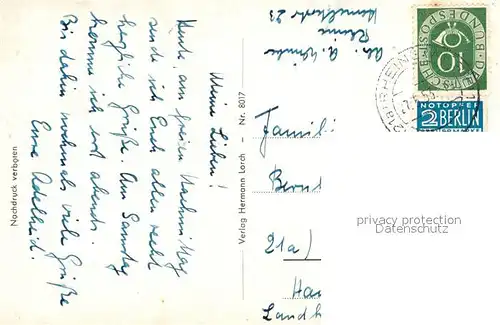 Meine Lieben!
Heute am freien Nachmittag
sende ich Euch allen recht
herzliche Grüße. Am Samstag
komme ich erst abends.
Bis dahin nochmals viele Grüße
Eure Adelheid.
Nachdruck verboten
Verlag Hermann Lorch - Nr. 8017
Abs. A.
Rheine
23
DEUTSCHE BUNDESPOST
10
NOTOPFER
2 BERLIN
STEUERMARKE
(21a) RHEINE
Famili
Bernd
21a)
Hau
Landk
privacy protection
Datenschutz